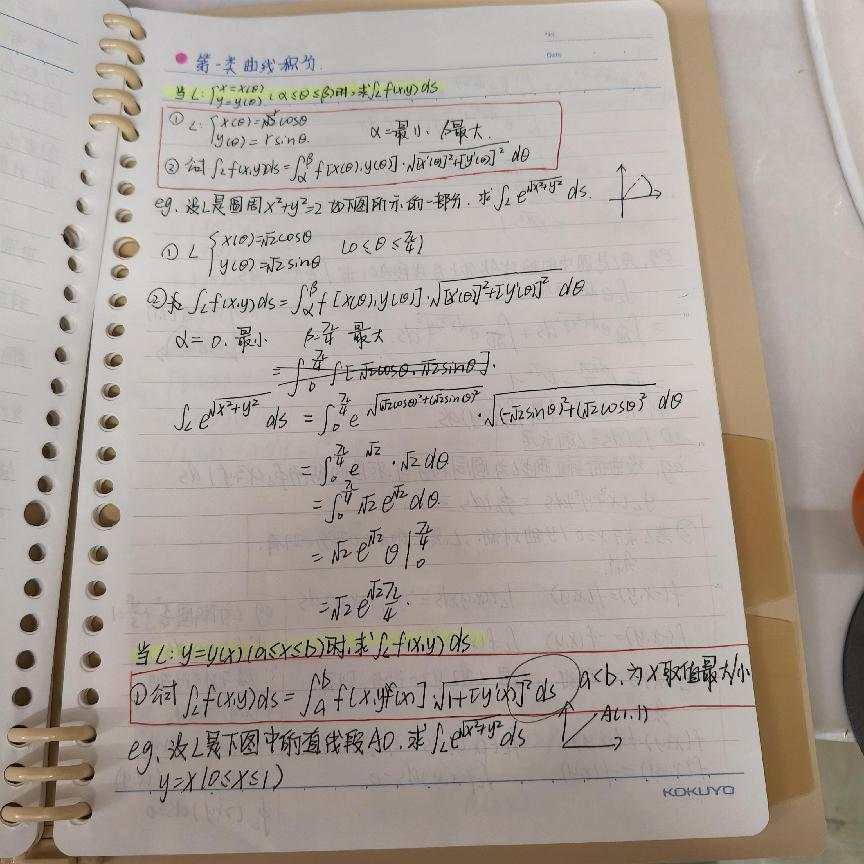 No.
Date
第一类曲线积分.
当L: {x=x(θ) y=y(θ) (α≤θ≤β)时,求∫L f(x,y)ds
① L: {x(θ)=rcosθ y(θ)=rsinθ. α=最小. β最大.
② 公式 ∫L f(x,y)ds=∫α^β f[x(θ),y(θ)]·√([x'(θ)]²+[y'(θ)]²) dθ
eg. 设L是圆周x²+y²=2如下图所示的一部分. 求∫L e^√(x²+y²) ds.
① L {x(θ)=√2cosθ y(θ)=√2sinθ (0≤θ≤π/4)
② ∫L f(x,y)ds=∫α^β f[x(θ),y(θ)]·√([x'(θ)]²+[y'(θ)]²) dθ
α=0. 最小 β=π/4 最大
=∫0^π/4 f[√2cosθ.√2sinθ].
∫L e^√(x²+y²) ds =∫0^π/4 e^√((√2cosθ)²+(√2sinθ)²)·√((-√2sinθ)²+(√2cosθ)²) dθ
=∫0^π/4 e^√2·√2dθ
=∫0^π/4 √2e^√2 dθ.
=√2e^√2 θ|0^π/4
=√2e^√2 π/4.
当L: y=y(x) (a≤x≤b)时,求∫L f(x,y)ds
①公式 ∫L f(x,y)ds=∫a^b f[x,y(x)]·√(1+[y'(x)]²) ds a<b, 为x取值最大/小
eg. 设L是下图中的直线段AO. 求∫L e^√(x²+y²) ds A(1,1)
y=x(0≤x≤1)
KOKUYO